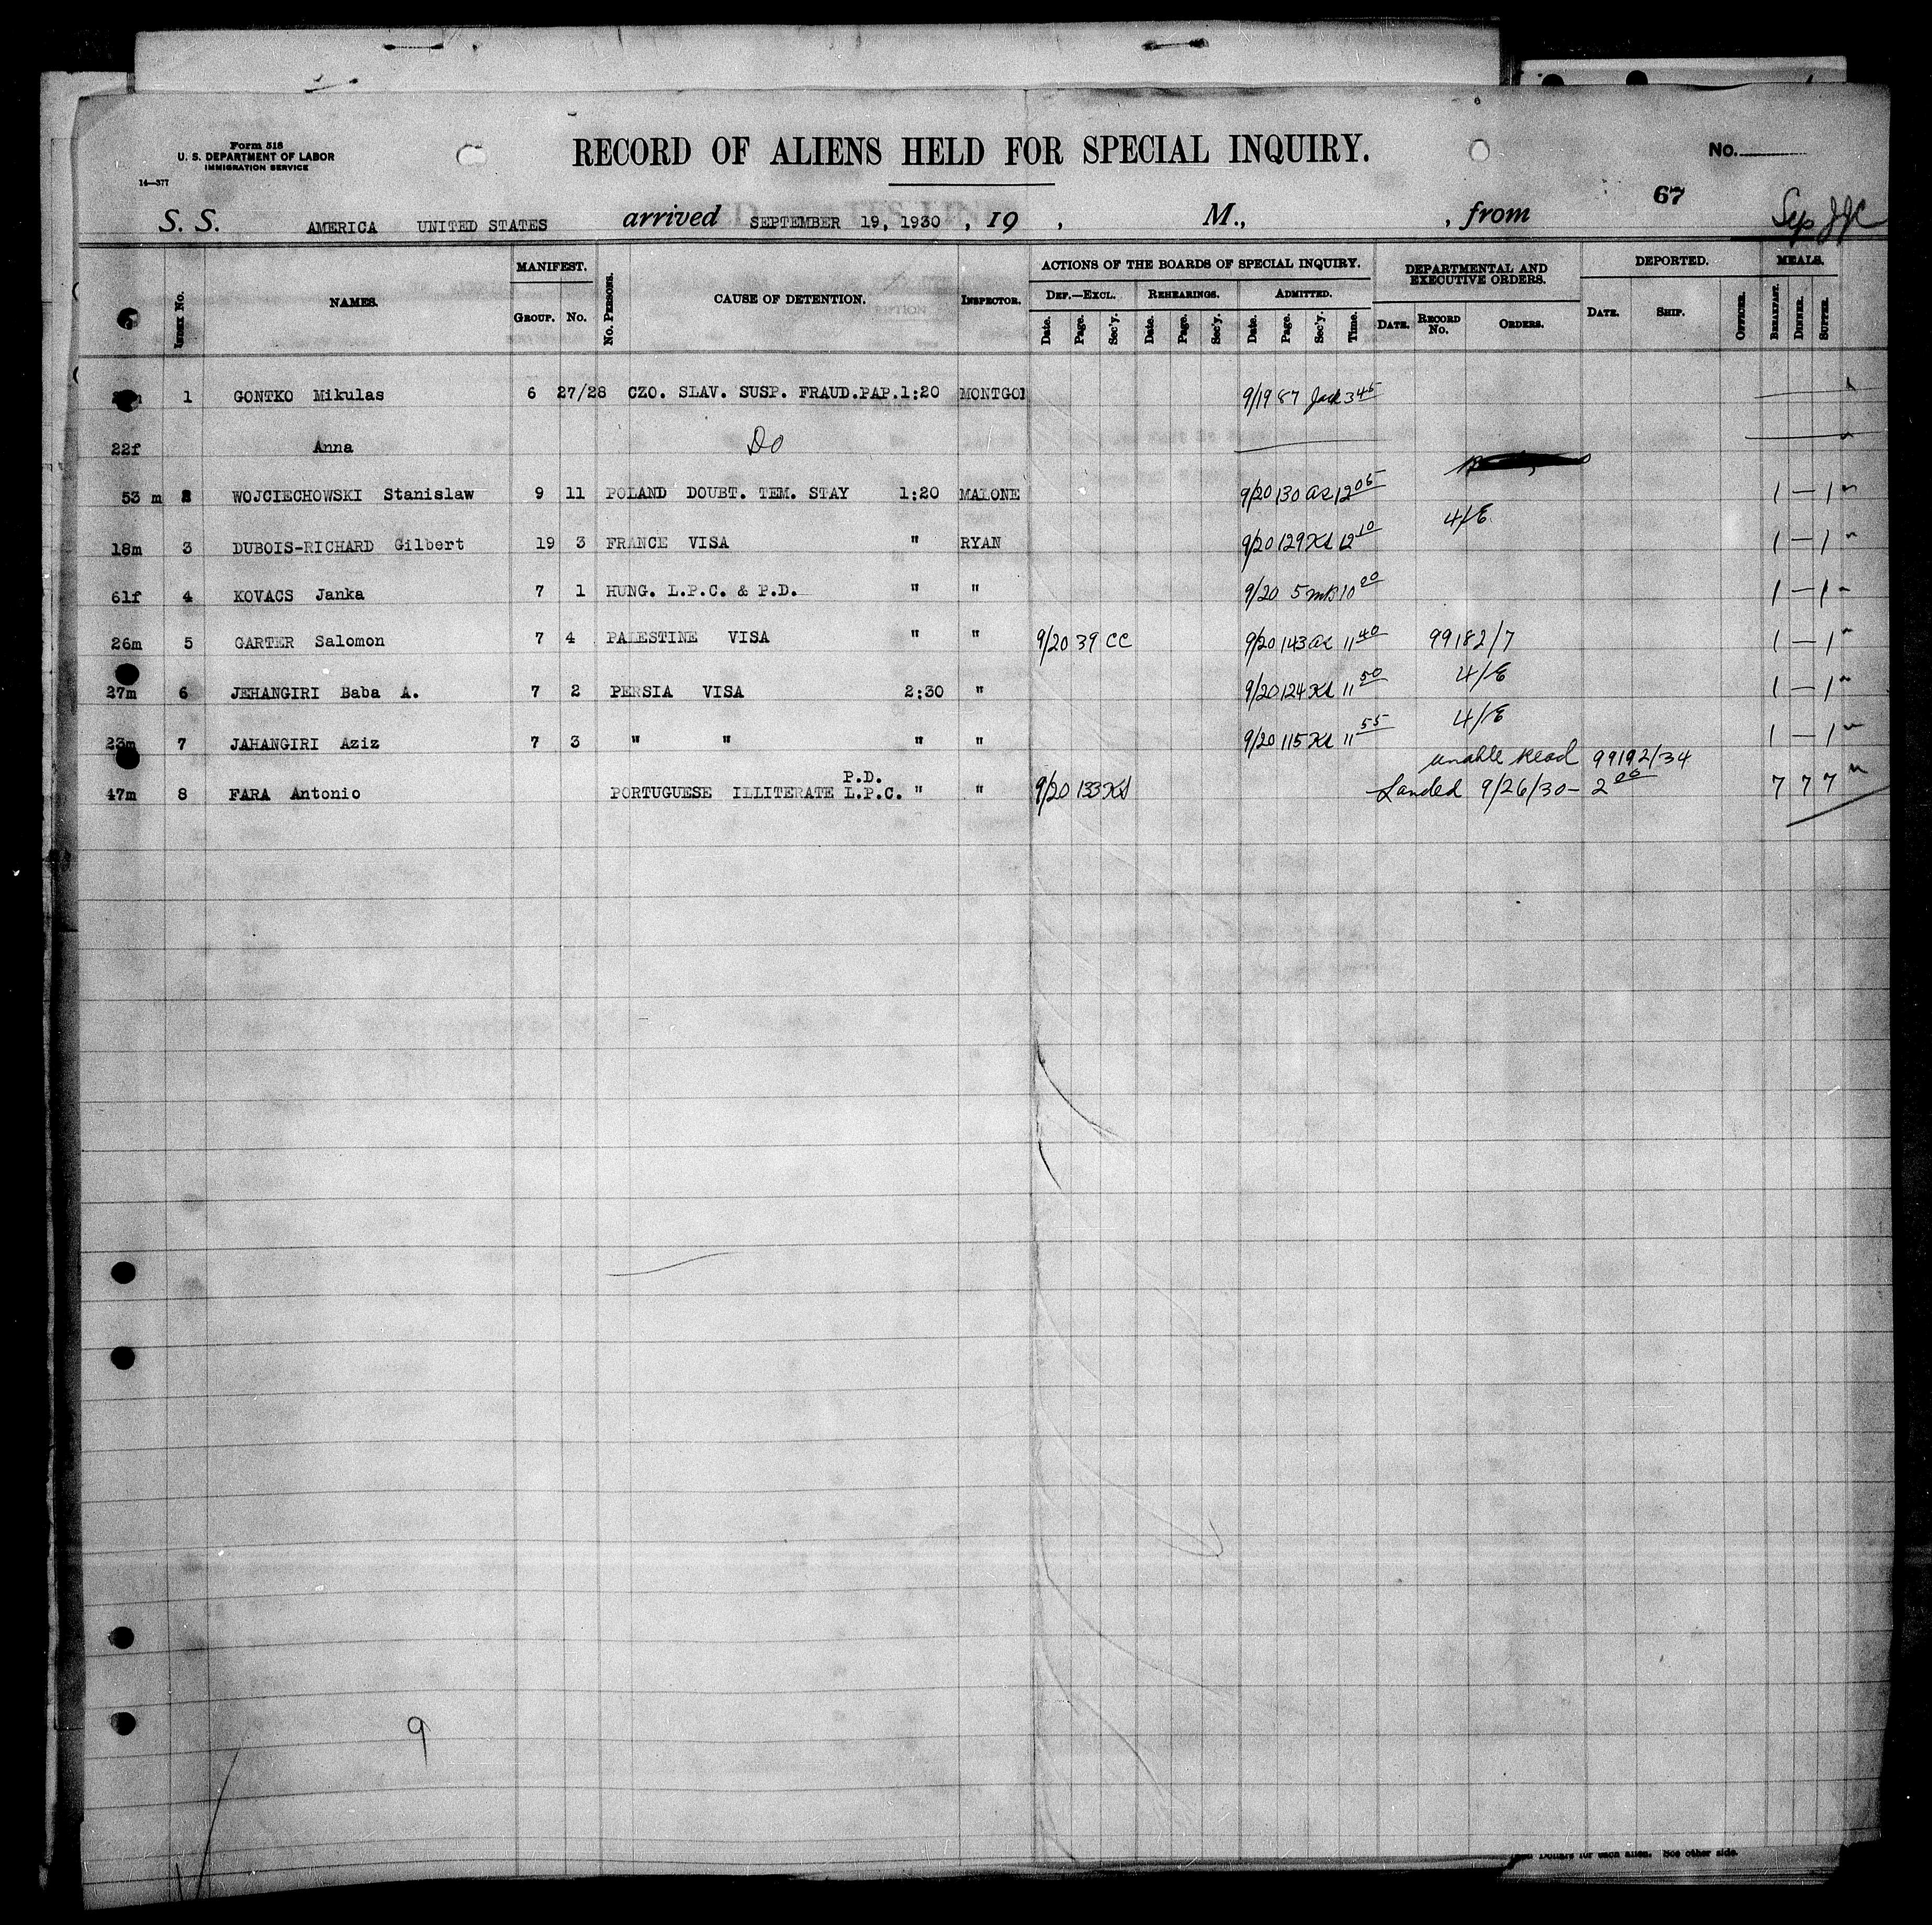 Form 518
U. S. DEPARTMENT OF LABOR
IMMIGRATION SERVICE
14—377
RECORD OF ALIENS HELD FOR SPECIAL INQUIRY.
No.
67
S. S. AMERICA UNITED STATES arrived SEPTEMBER 19, 1930 , 19 , M., , from
Sep
INDEX No. NAMES. MANIFEST. GROUP. No. No. PERSONS. CAUSE OF DETENTION. INSPECTOR. ACTIONS OF THE BOARDS OF SPECIAL INQUIRY. DEF.—EXCL. Date. Page. Sec'y. REHEARINGS. Date. Page. Sec'y. ADMITTED. Date. Page. Sec'y. Time. DEPARTMENTAL AND EXECUTIVE ORDERS. DATE. RECORD No. ORDERS. DEPORTED. DATE. SHIP. OFFICER. MEALS. BREAKFAST. DINNER. SUPPER.
1 GONTKO Mikulas 6 27/28 CZO. SLAV. SUSP. FRAUD.PAP.1:20 MONTGOM 9/19 87 Jack 3 45
22f Anna Do
53 m 2 WOJCIECHOWSKI Stanislaw 9 11 POLAND DOUBT. TEM. STAY 1:20 MALONE 9/20 130 ac 12 05 1 — 1
4/E
18m 3 DUBOIS-RICHARD Gilbert 19 3 FRANCE VISA " RYAN 9/20 129 KL 12 10 1 — 1
61f 4 KOVACS Janka 7 1 HUNG. L.P.C. & P.D. " " 9/20 5 MB 10 00 1 — 1
26m 5 GARTER Salomon 7 4 PALESTINE VISA " " 9/20 39 CC 9/20 143 ac 11 40 99182/7 1 — 1
4/E
27m 6 JEHANGIRI Baba A. 7 2 PERSIA VISA 2:30 " 9/20 124 KL 11 50 1 — 1
4/E
23m 7 JAHANGIRI Aziz 7 3 " " " " 9/20 115 KL 11 55 1 — 1
unable Read 99192/34
P.D.
47m 8 FARA Antonio PORTUGUESE ILLITERATE L.P.C. " " 9/20 133 KL Landed 9/26/30 – 2 00 7 7 7
9
Dollars for each alien. See other side.